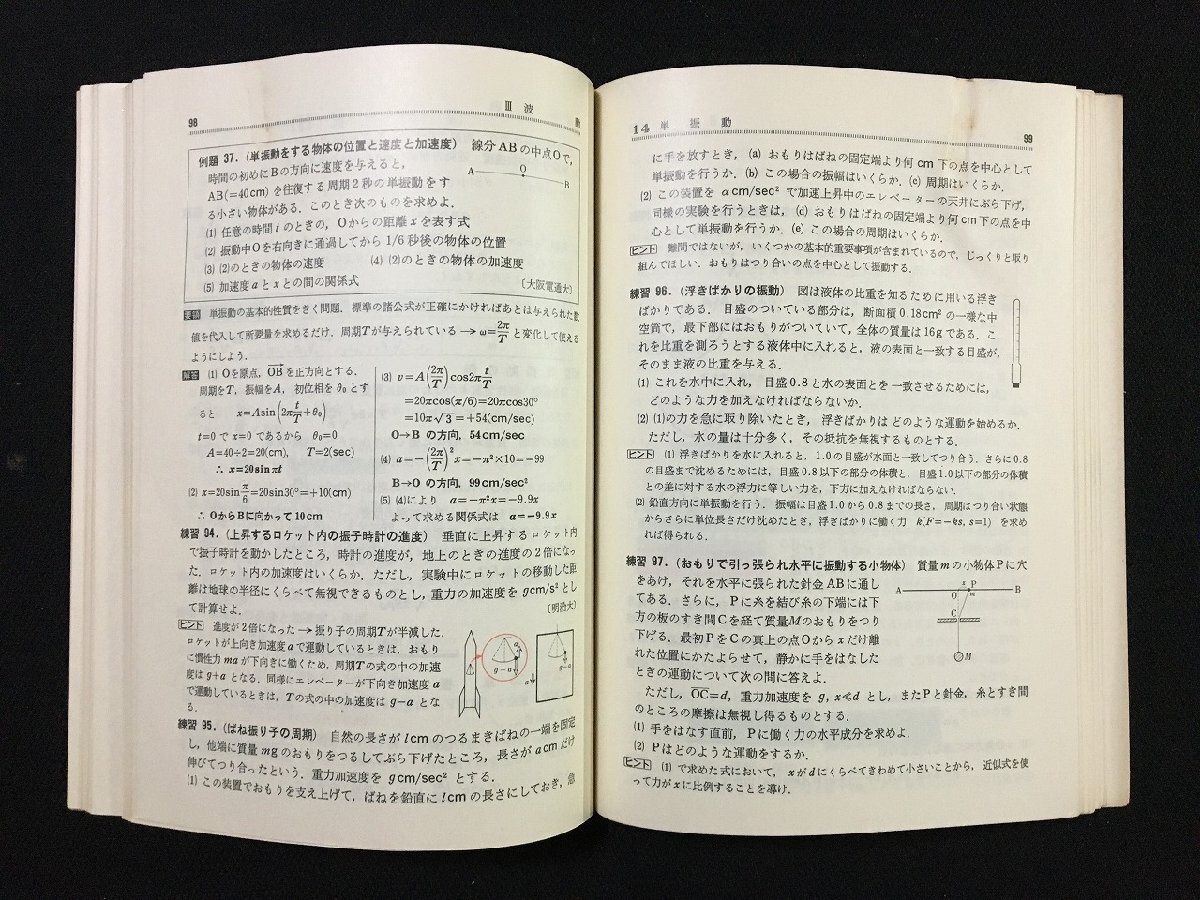 98
III 波 動
例題 37. (単振動をする物体の位置と速度と加速度) 線分ABの中点Oで,
時間の初めにBの方向に速度を与えると,
AB(=40cm) を往復する周期2秒の単振動をす
る小さい物体がある. このとき次のものを求めよ.
A O B
(1) 任意の時間 t のときの, Oからの距離 x を表す式
(2) 振動中Oを右向きに通過してから 1/6 秒後の物体の位置
(3) (2)のときの物体の速度 (4) (2)のときの物体の加速度
(5) 加速度 a と x との間の関係式 〔大阪電通大〕
要領 単振動の基本的性質をきく問題. 標準の諸公式が正確にかければあとは与えられた数
値を代入して所要量を求めるだけ. 周期Tが与えられている → ω=2π/T と変化して使える
ようにしよう.
解答 (1) Oを原点, OB を正方向とする.
周期をT, 振幅をA, 初位相を θ₀ とす
ると x=A sin(2π t/T+θ₀)
t=0 で x=0 であるから θ₀=0
A=40÷2=20(cm), T=2(sec)
∴ x=20 sin πt
(2) x=20sin π/6=20sin30°=+10(cm)
∴ OからBに向かって 10cm
(3) v=A(2π/T)cos2π t/T
=20πcos(π/6)=20πcos30°
=10π√3=+54(cm/sec)
O→B の方向, 54cm/sec
(4) a=-(2π/T)²x=-π²×10=-99
B→O の方向, 99cm/sec²
(5) (4)により a=-π²x=-9.9x
よって求める関係式は a=-9.9x
練習 94. (上昇するロケット内の振子時計の進度) 垂直に上昇するロケット内
で振子時計を動かしたところ, 時計の進度が, 地上のときの進度の2倍になっ
た. ロケット内の加速度はいくらか. ただし, 実験中にロケットの移動した距
離は地球の半径にくらべて無視できるものとし, 重力の加速度を gcm/s² とし
て計算せよ. 〔明治大〕
ヒント 進度が2倍になった → 振り子の周期Tが半減した.
ロケットが上向き加速度 a で運動しているときは, おもり
に慣性力 ma が下向きに働くため, 周期Tの式の中の加速
度は g+a となる. 同様にエレベーターが下向き加速度 a
で運動しているときは, Tの式の中の加速度は g-a とな
る.
練習 95. (ばね振り子の周期) 自然の長さが lcm のつるまきばねの一端を固定
し, 他端に質量 mg のおもりをつるしてぶら下げたところ, 長さが acm だけ
伸びてつり合ったという. 重力加速度を gcm/sec² とする.
(1) この装置でおもりを支え上げて, ばねを鉛直に lcm の長さにしておき, 急
14 単 振 動
99
に手を放すとき, (a) おもりはばねの固定端より何 cm 下の点を中心として
単振動を行うか. (b) この場合の振幅はいくらか. (c) 周期はいくらか.
(2) この装置を αcm/sec² で加速上昇中のエレベーターの天井にぶら下げ,
同様の実験を行うときは, (c) おもりはばねの固定端より何cm下の点を中
心として単振動を行うか. (e) この場合の周期はいくらか.
ヒント 難問ではないが, いくつかの基本的重要事項が含まれているので, じっくりと取り
組んでほしい. おもりはつり合いの点を中心として振動する.
練習 96. (浮きばかりの振動) 図は液体の比重を知るために用いる浮き
ばかりである. 目盛のついている部分は, 断面積 0.18cm² の一様な中
空筒で, 最下部にはおもりがついていて, 全体の質量は16gである. こ
れを比重を測ろうとする液体中に入れると, 液の表面と一致する目盛が,
そのまま液の比重を与える.
(1) これを水中に入れ, 目盛0.8と水の表面とを一致させるためには,
どのような力を加えなければならないか.
(2) (1)の力を急に取り除いたとき, 浮きばかりはどのような運動を始めるか.
ただし, 水の量は十分多く, その抵抗を無視するものとする.
ヒント (1) 浮きばかりを水に入れると, 1.0の目盛が水面と一致してつり合う. さらに0.8
の目盛まで沈めるためには, 目盛0.8以下の部分の体積と, 目盛1.0以下の部分の体積
との差に対する水の浮力に等しい力を, 下方に加えなければならない.
(2) 鉛直方向に単振動を行う. 振幅は目盛1.0から0.8までの長さ, 周期はつり合い状態
からさらに単位長さだけ沈めたとき, 浮きばかりに働く力 k(F=-ks, s=1) を求め
れば得られる.
練習 97. (おもりで引っ張られ水平に振動する小物体) 質量mの小物体Pに穴
をあけ, それを水平に張られた針金ABに通し
てある. さらに, Pに糸を結び糸の下端には下
方の板のすき間Cを経て質量Mのおもりをつり
下げる. 最初PをCの真上の点Oからxだけ離
れた位置にかたよらせて, 静かに手をはなした
ときの運動について次の問に答えよ.
A O x P m B
C
M
ただし, OC=d, 重力加速度を g, x≪d とし, またPと針金, 糸とすき間
のところの摩擦は無視し得るものとする.
(1) 手をはなす直前, Pに働く力の水平成分を求めよ.
(2) Pはどのような運動をするか.
ヒント (1) で求めた式において, xがdにくらべてきわめて小さいことから, 近似式を使
って力がxに比例することを導け.